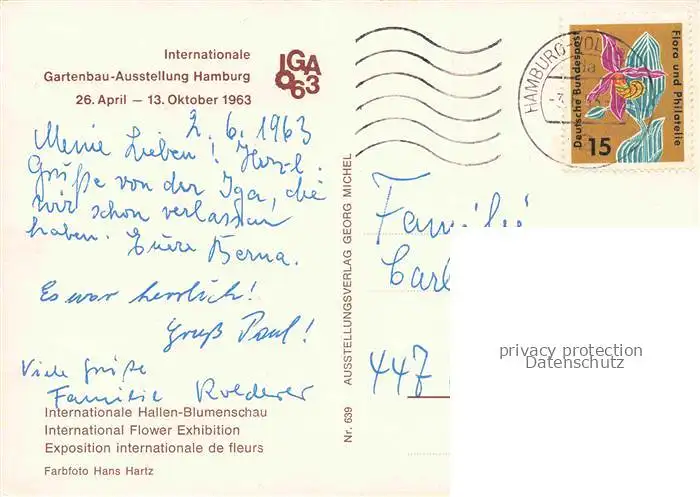 Internationale
Gartenbau-Ausstellung Hamburg
26. April — 13. Oktober 1963
IGA
63
2. 6. 1963
Meine Lieben! Herzl.
Grüße von der Iga, die
wir schon verlassen
haben. Eure Berna.
Es war herrlich!
Gruß Paul!
Viele Grüße
Familie Roederer
Internationale Hallen-Blumenschau
International Flower Exhibition
Exposition internationale de fleurs
Farbfoto Hans Hartz
Nr. 639 AUSSTELLUNGSVERLAG GEORG MICHEL
HAMBURG
Deutsche Bundespost
Flora und Philatelie
15
Familie
Carl
447
privacy protection
Datenschutz